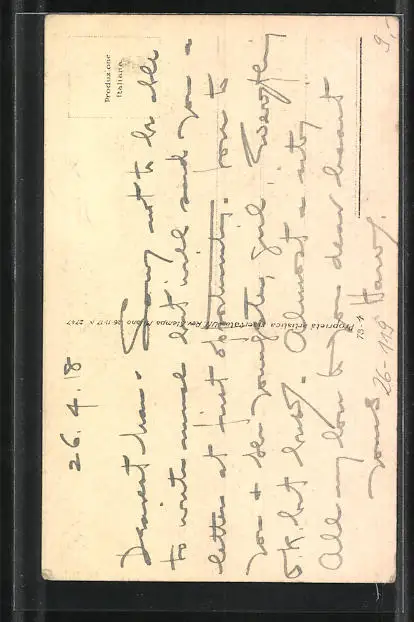 26.4.18
Dearest
Sorry not to be able
to write much but will send you a
letter at first opportunity. Love to
you & the youngster, girl. Everything
OK. but busy. Almost a
All my love to you dear heart
Yours
Harry.
Produzione
Italiana
Proprietà artistica riservata
Rev. Stampa Milano 26-11-17 N. 2747
73-4
26-119
9,-